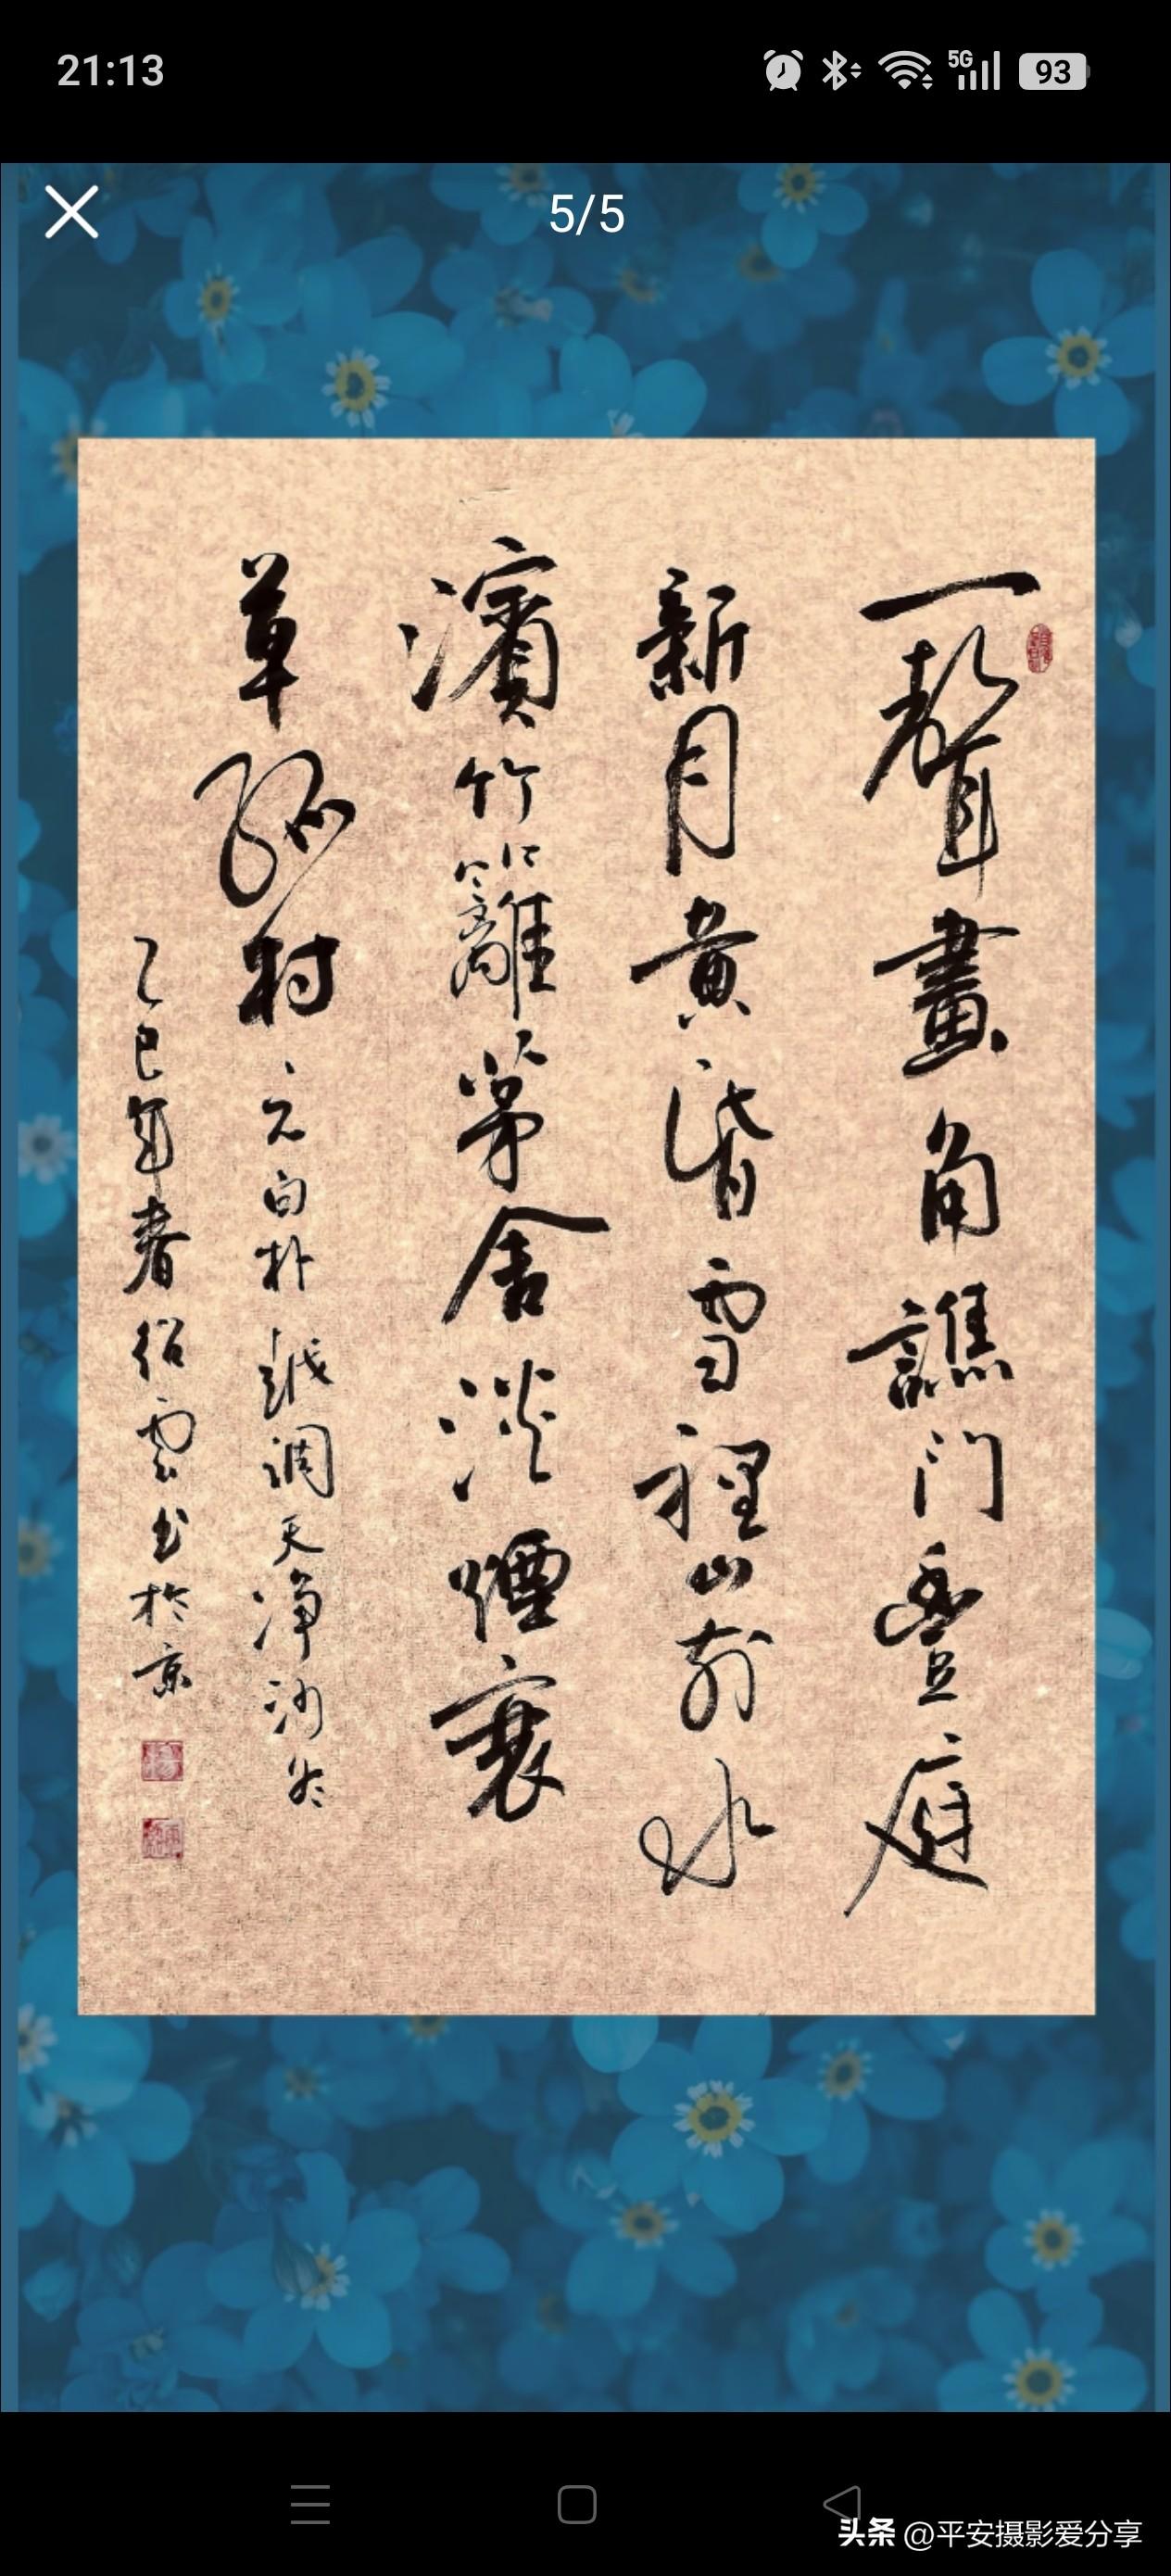 21:13
5G
93
5/5
一聲畫角譙门庭
新月黄昏雪裡山前水
濱竹籬茅舍淡煙衰
草孤村 元白朴越調天净沙冬
乙巳年春绍雲书於京
头条 @平安摄影爱分享